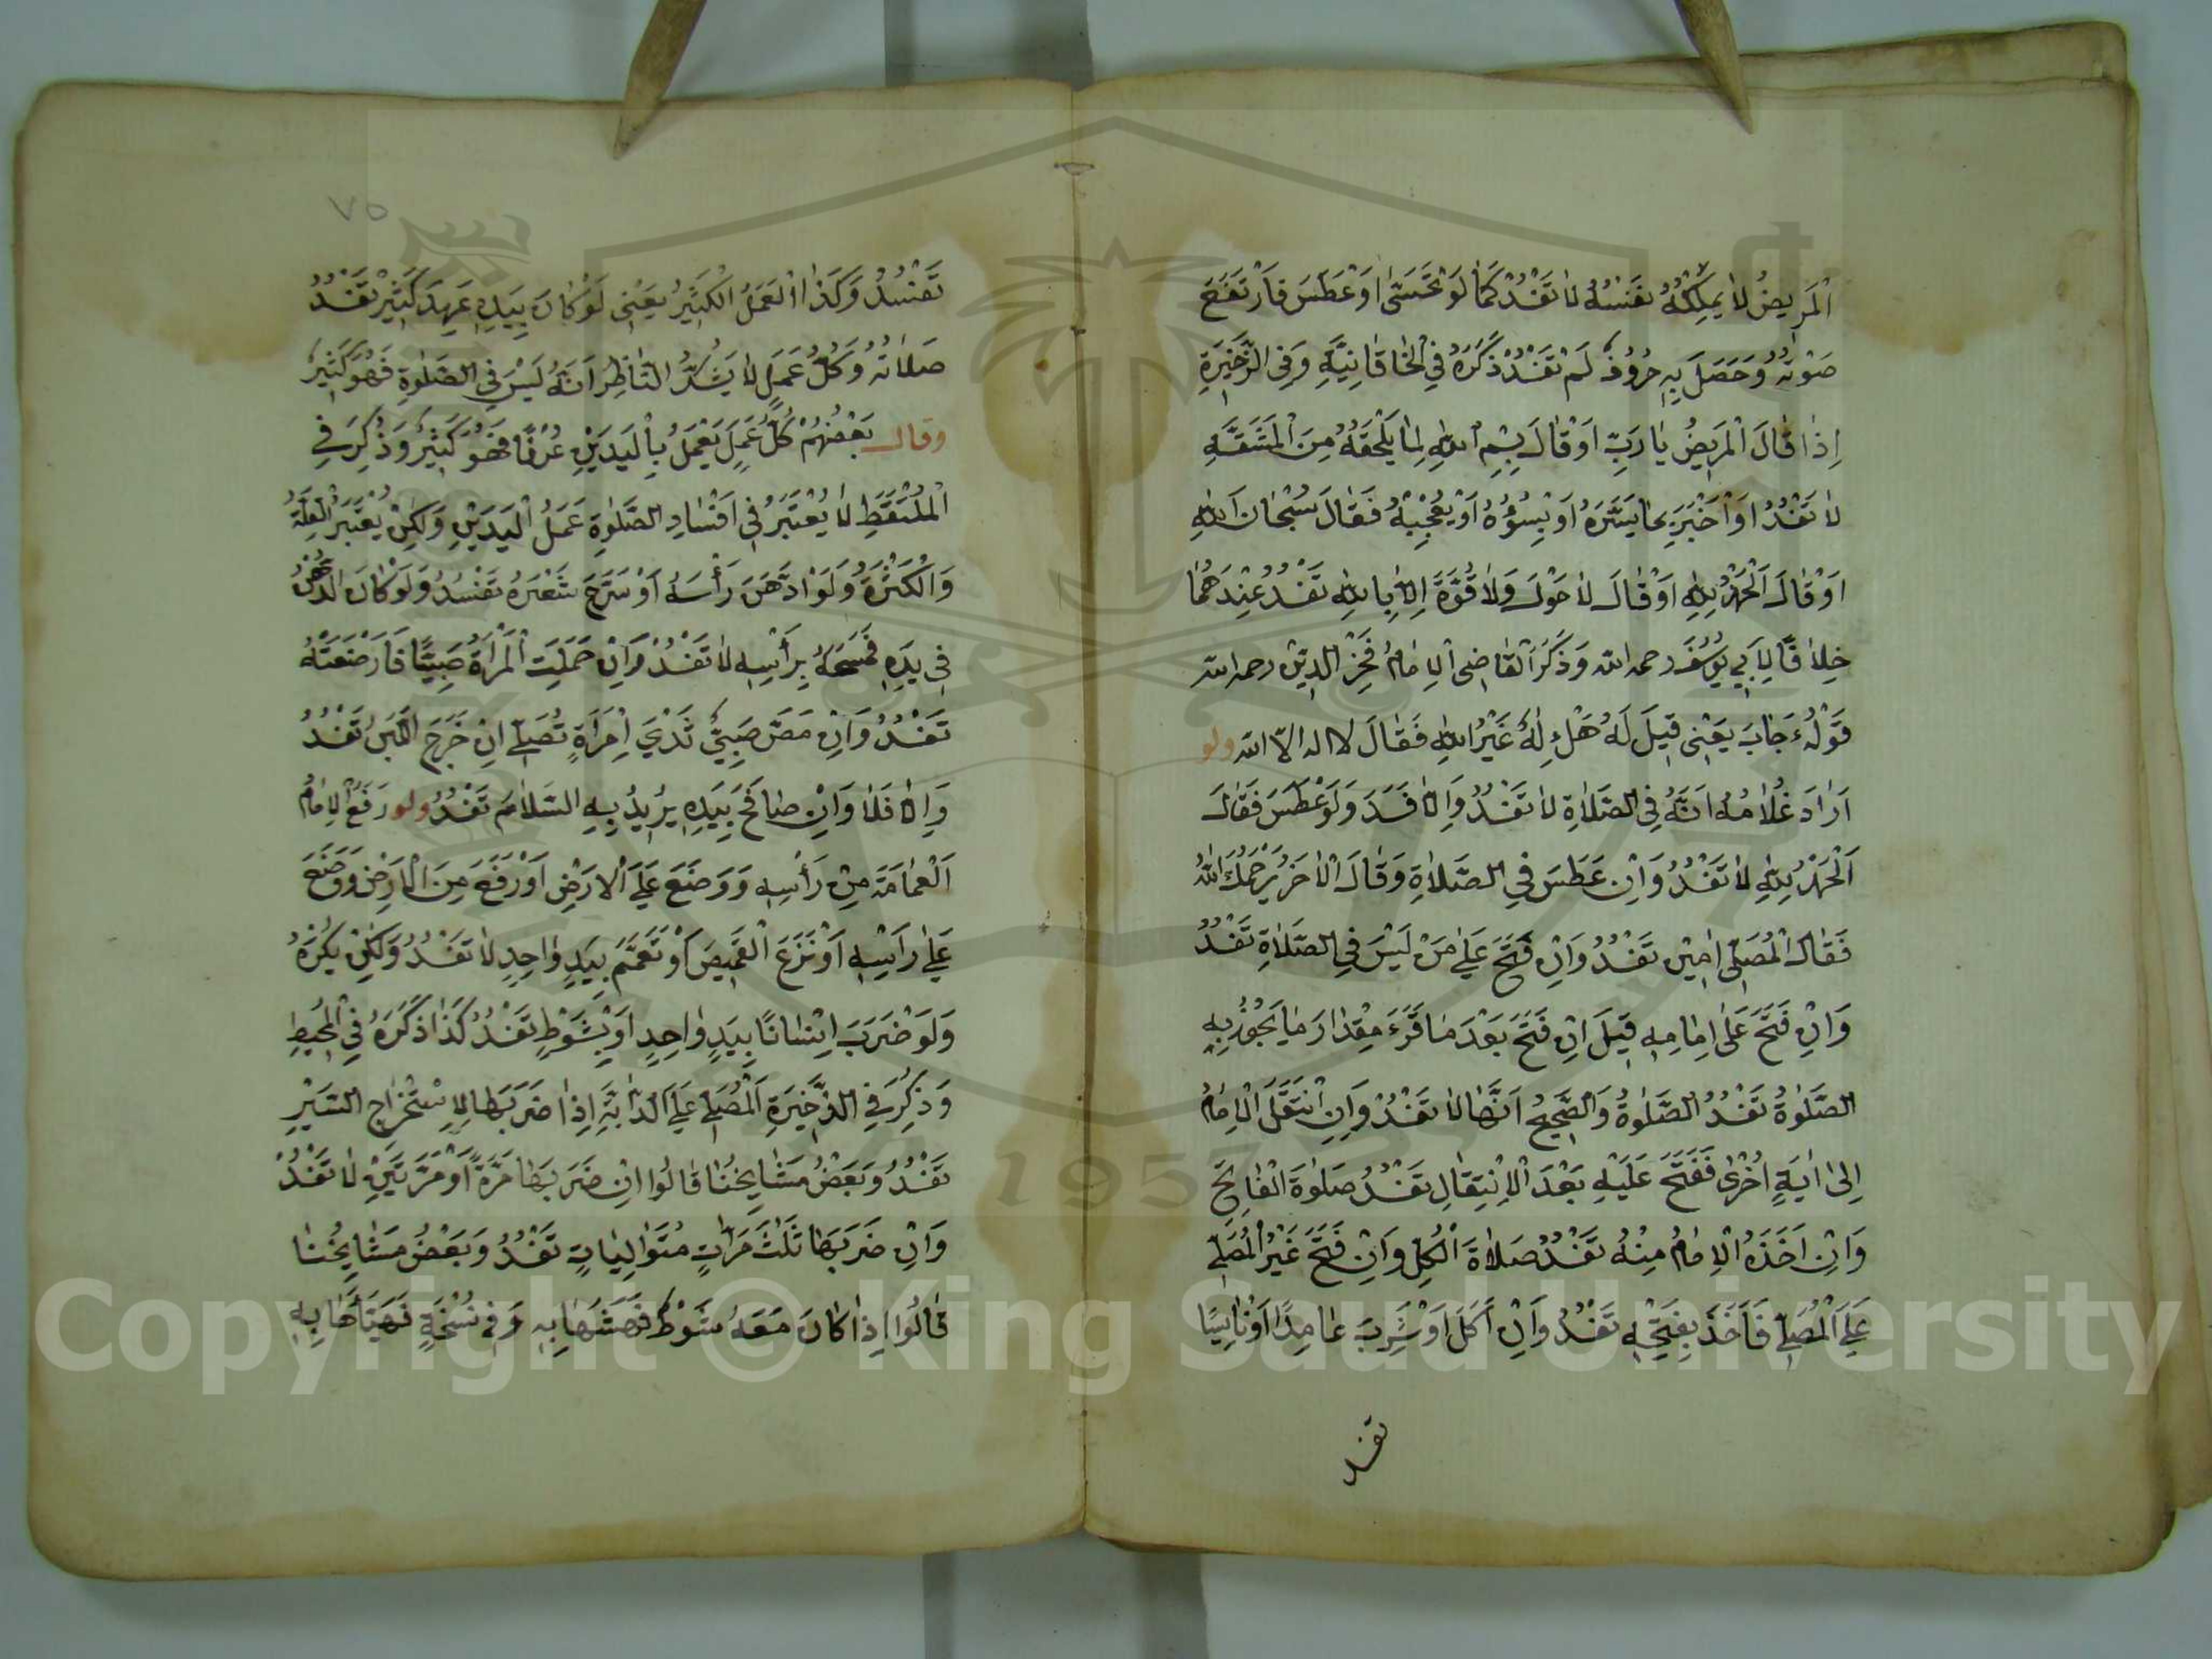 اَلْمَرِيضُ لَا يَمْلِكُهُ نَفْسُهُ لَا تَفْسُدُ كَمَا لَوْ تَجَشَّى اَوْ عَطَسَ فَارْتَفَعَ
صَوْتُهُ وَحَصَلَ بِهِ حُرُوفٌ لَمْ تَفْسُدْ ذَكَرَهُ فِي الْخَاقَانِيَّةِ وَفِي الذَّخِيرَةِ
اِذَا قَالَ الْمَرِيضُ يَا رَبِّ اَوْ قَالَ بِسْمِ اللهِ لِمَا يَلْحَقُهُ مِنَ الْمَشَقَّةِ
لَا تَفْسُدُ اَوْ اَخْبَرَ بِمَا يَسُرُّهُ اَوْ يَسُؤُهُ اَوْ يُعْجِبُهُ فَقَالَ سُبْحَانَ اللهِ
اَوْ قَالَ اَلْحَمْدُ لِلّهِ اَوْ قَالَ لَا حَوْلَ وَلَا قُوَّةَ اِلَّا بِاللهِ تَفْسُدُ عِنْدَهُمَا
خِلَافًا لِاَبِي يُوسُفَ رحمه الله وَذَكَرَ الْقَاضِى الْاِمَامُ فَخْرُ الدِّيْنِ رحمه الله
قَوْلُهُ جَابَ يَعْنِى قِيلَ لَهُ هَلْ اِلٰهٌ غَيْرُ اللهِ فَقَالَ لا اله الا الله ولو
اَرَادَ غُلَامُهُ اَنَّهُ فِي الصَّلَاةِ لَا تَفْسُدُ وَاِلَّا فَسَدَ وَلَوْ عَطَسَ فَقَالَ
اَلْحَمْدُ لِلّهِ لَا تَفْسُدُ وَاِنْ عَطَسَ فِي الصَّلَاةِ وَقَالَ الْاٰخَرُ يَرْحَمُكَ اللهُ
فَقَالَ الْمُصَلِّى اٰمِيْن تَفْسُدُ وَاِنْ فَتَحَ عَلَى مَنْ لَيْسَ فِي الصَّلَاةِ تَفْسُدُ
وَاِنْ فَتَحَ عَلَى اِمَامِهِ قِيلَ اِنْ فَتَحَ بَعْدَ مَا قَرَءَ مِقْدَارَ مَا يَجُوزُ بِهِ
الصَّلوٰةُ تَفْسُدُ الصَّلوٰةُ وَالصَّحِيحُ اَنَّهَا لَا تَفْسُدُ وَاِنِ انْتَقَلَ الْاِمَامُ
اِلَى اٰيَةٍ اُخْرَى فَفَتَحَ عَلَيْهِ بَعْدَ الْاِنْتِقَالِ تَفْسُدُ صَلوٰةَ الْفَاتِحِ
وَاِنْ اَخَذَهُ الْاِمَامُ مِنْهُ تَفْسُدُ صَلَاةَ الْكُلِّ وَاِنْ فَتَحَ غَيْرُ الْمُصَلِّي
عَلَى الْمُصَلِّي فَاَخَذَ بِفَتْحِهِ تَفْسُدُ وَاِنْ اَكَلَ اَوْ شَرِبَ عَامِدًا اَوْ نَاسِيًا
تفسد
٧٥
تَفْسُدُ وَكَذَا الْعَمَلُ الْكَثِيرُ يَعْنِى لَوْ كَانَ بِيَدِهِ كَثِيرٌ تَفْسُدُ
صَلَاتُهُ وَكُلُّ عَمَلٍ لَا يَشُكُّ النَّاظِرُ اَنَّهُ لَيْسَ فِي الصَّلوٰةِ فَهُوَ كَثِيرٌ
وقال بَعْضُهُمْ كُلُّ عَمَلٍ يَعْمَلُ بِالْيَدَيْنِ عُرْفًا فَهُوَ كَثِيرٌ وَذُكِرَ فِي
الْمُلْتَقَطِ لَا يُعْتَبَرُ فِي اِفْسَادِ الصَّلوٰةِ عَمَلُ الْيَدَيْنِ وَلَكِنْ يُعْتَبَرُ الْقِلَّةُ
وَالْكَثْرَةُ وَلَوِ ادَّهَنَ رَأْسَهُ اَوْ سَرَّحَ شَعْرَهُ تَفْسُدُ وَلَوْ كَانَ الدُّهْنُ
فِي يَدِهِ فَمَسَحَهُ بِرَأْسِهِ لَا تَفْسُدُ وَاِنْ حَمَلَتِ الْمَرْاَةُ صَبِيًّا فَاَرْضَعَتْهُ
تَفْسُدُ وَاِنْ مَصَّ صَبِيٌّ ثَدْيَ اِمْرَاَةٍ تُصَلِّي اِنْ خَرَجَ اللَّبَنُ تَفْسُدُ
وَاِلَّا فَلَا وَاِنْ صَافَحَ بِيَدِهِ يُرِيدُ بِهِ السَّلَامَ تَفْسُدُ ولو رَفَعَ الْاِمَامُ
اَلْعِمَامَةَ مِنْ رَأْسِهِ وَوَضَعَ عَلَى الْاَرْضِ اَوْ رَفَعَ مِنَ الْاَرْضِ وَوَضَعَ
عَلَى رَأْسِهِ اَوْ نَزَعَ الْقَمِيصَ اَوْ تَعَمَّمَ بِيَدٍ وَاحِدٍ لَا تَفْسُدُ وَلَكِنْ يُكْرَهُ
وَلَوْ ضَرَبَ اِنْسَانًا بِيَدٍ وَاحِدٍ اَوْ بِسَوْطٍ تَفْسُدُ كَذَا ذَكَرَهُ فِي الْمُحِيطِ
وَذُكِرَ فِي الذَّخِيرَةِ اَلْمُصَلِّي عَلَى الدَّابَّةِ اِذَا ضَرَبَهَا لِاِسْتِخْرَاجِ السَّيْرِ
تَفْسُدُ وَبَعْضُ مَشَايِخُنَا قَالُوا اِنْ ضَرَبَهَا مَرَّةً اَوْ مَرَّتَيْنِ لَا تَفْسُدُ
وَاِنْ ضَرَبَهَا ثَلٰثَ مَرَّاتٍ مُتَوَالِيَاتٍ تَفْسُدُ وَبَعْضُ مَشَايِخُنَا
قَالُوا اِذَا كَانَ مَعَهُ سَوْطٌ فَهَشَّهَا بِهِ وَفِي نُسْخَةٍ فَهَيَّأَهَا بِهِ
1957
Copyright © King Saud University